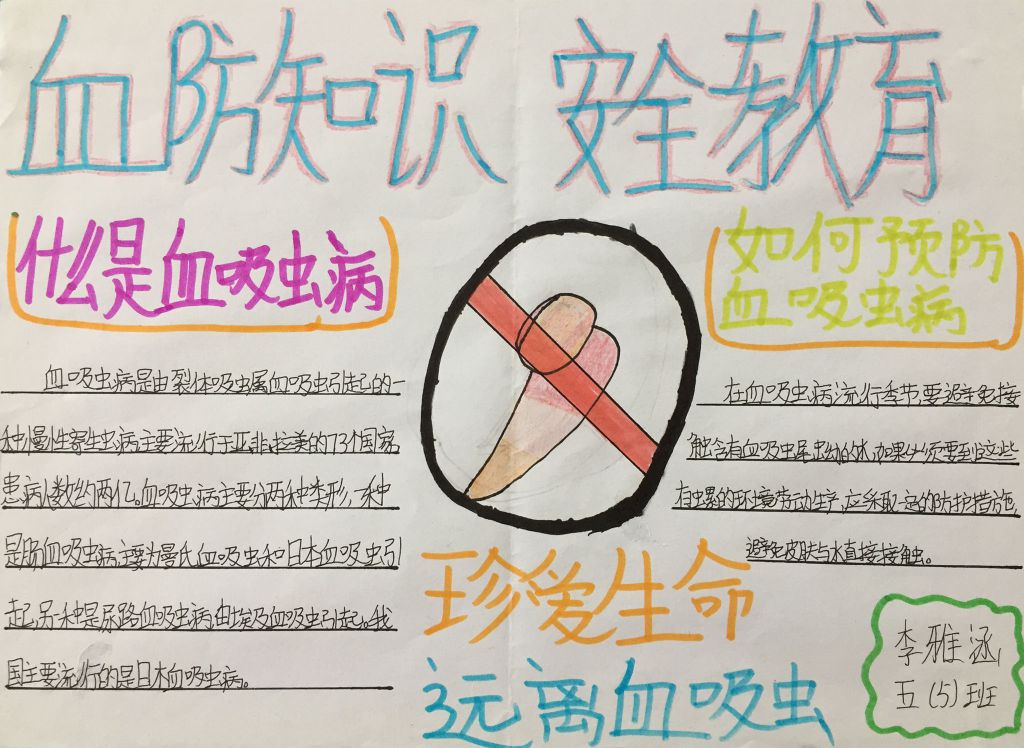 血防知识 安全教育
什么是血吸虫病
血吸虫病是由裂体吸虫属血吸虫引起的一
种慢性寄生虫病,主要流行于亚非拉美的73个国家,
患病人数约两亿。血吸虫病主要分两种类形,一种
是肠血吸虫病,主要为曼氏血吸虫和日本血吸虫引
起,另一种是尿路血吸虫病,由埃及血吸虫引起。我
国主要流行的是日本血吸虫病。
如何预防
血吸虫病
在血吸虫病流行季节,要避免接
触含有血吸虫尾虫幼的水,如果必须要到这些
有虫累的环境劳动生产,应采取一定的防护措施,
避免皮肤与水直接接触。
珍爱生命
远离血吸虫
李雅涵
五(5)班